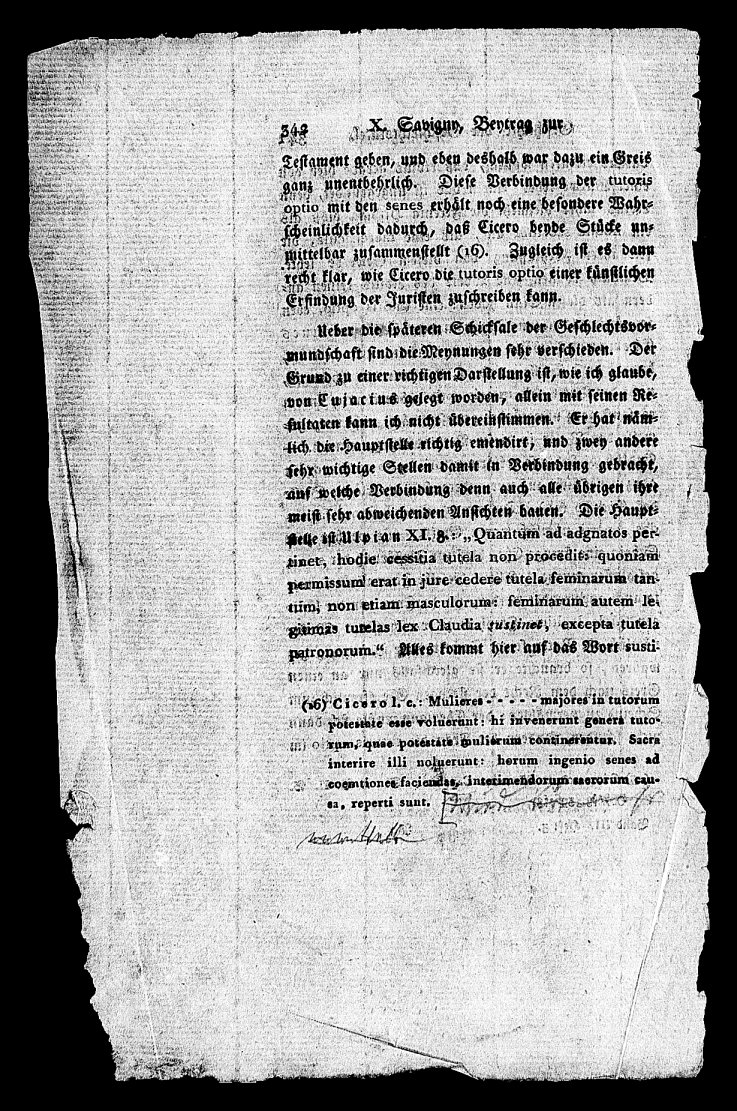 342 X. Savigny, Beytrag zur
Testament geben, und eben deshalb war dazu ein Greis
ganz unentbehrlich. Diese Verbindung der tutoris
optio mit den senes erhält noch eine besondere Wahr-
scheinlichkeit dadurch, daß Cicero beyde Stücke un-
mittelbar zusammenstellt (16). Zugleich ist es dann
recht klar, wie Cicero die tutoris optio einer künstlichen
Erfindung der Juristen zuschreiben kann.
Ueber die späteren Schicksale der Geschlechtsvor-
mundschaft sind die Meynungen sehr verschieden. Der
Grund zu einer richtigen Darstellung ist, wie ich glaube,
von Cujacius gelegt worden, allein mit seinen Re-
sultaten kann ich nicht übereinstimmen. Er hat näm-
lich die Hauptstelle richtig emendirt, und zwey andere
sehr wichtige Stellen damit in Verbindung gebracht,
auf welche Verbindung denn auch alle übrigen ihre
meist sehr abweichenden Ansichten bauen. Die Haupt-
stelle ist Ulpian XI. 8.: „Quantum ad adgnatos per-
tinet, hodie cessitia tutela non procedit: quoniam
permissum erat in jure cedere tutela feminarum tan-
tum, non etiam masculorum: feminarum autem le-
gitimas tutelas lex Claudia sustinet, excepta tutela
patronorum.“ Alles kommt hier auf das Wort susti-
(16) Cicero l. c.: Mulieres - - - - - majores in tutorum
potestate esse voluerunt: hi invenerunt genera tuto-
rum, quae potestate mulierum continerentur. Sacra
interire illi noluerunt: horum ingenio senes ad
coemtiones faciendas, interimendorum sacrorum cau-
sa, reperti sunt.